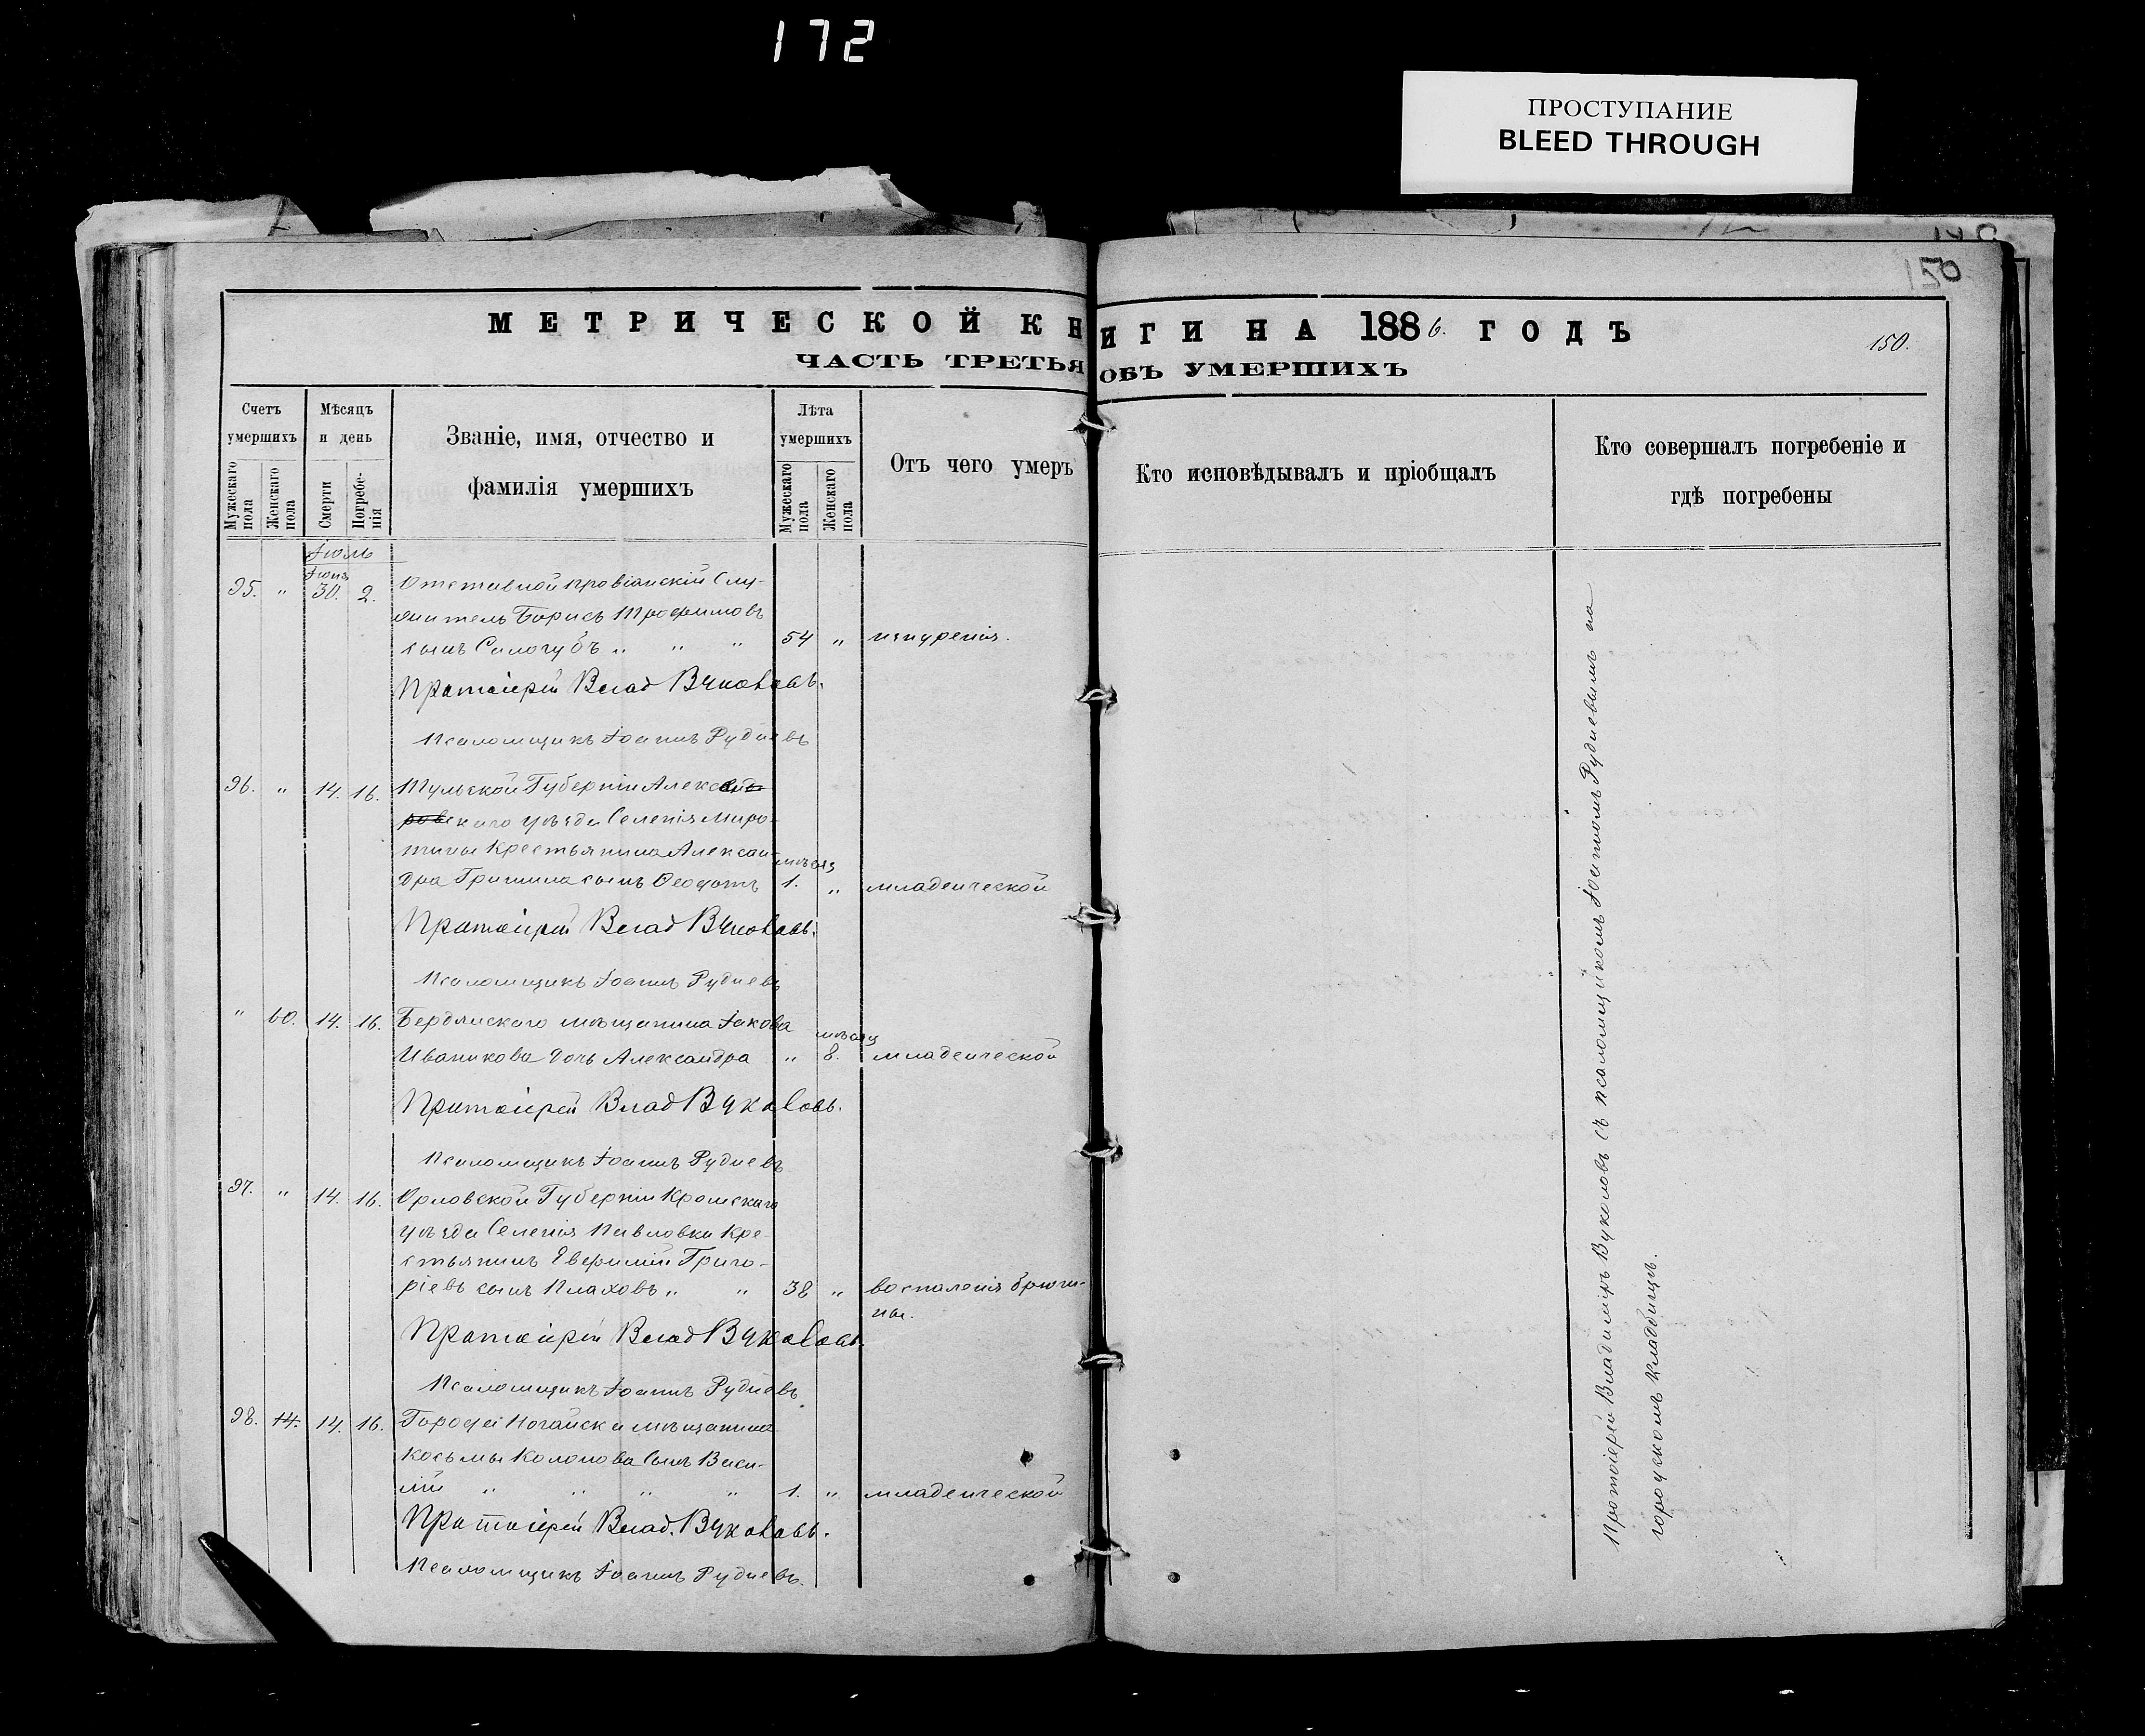 172
ПРОСТУПАНИЕ
BLEED THROUGH
150
МЕТРИЧЕСКОЙ КНИГИ НА 1886. ГОДЪ
150.
ЧАСТЬ ТРЕТЬЯ ОБЪ УМЕРШИХЪ
Счетъ умершихъ
Мужескаго пола
Женскаго пола
Мѣсяцъ и день
Смерти
Погребенія
Званіе, имя, отчество и
фамилія умершихъ
Лѣта умершихъ
Мужескаго пола
Женскаго пола
Отъ чего умеръ
Кто исповѣдывалъ и пріобщалъ
Кто совершалъ погребеніе и
гдѣ погребены
Іюль
Іюнь
95. " 30. 2. Отставной провіанскій Слу-
житель Борисъ Трофимовъ
сынъ Сологубъ " " " 54 " изнуренія.
Протоіерей Влад Вуколовъ.
Псаломщикъ Іоаннъ Рудневъ
96. " 14. 16. Тульской Губерніи Алекс
скаго уѣзда Селенія Миро-
тины Крестьянина Алексан-
дра Гришина сынъ Ѳеодотъ мѣсяц 1. " младенческой
Протоіерей Влад Вуколовъ.
Псаломщикъ Іоаннъ Рудневъ
" 60. 14. 16. Бердянскаго мѣщанина Іакова
Иваникова дочь Александра " мѣсяц 8. младенческой
Протоіерей Влад Вуколовъ.
Псаломщикъ Іоаннъ Рудневъ
97. " 14. 16. Орловской Губерніи Кромскаго
уѣзда Селенія Павловки Кре-
стьянинъ Евфимій Григо-
ріевъ сынъ Плаховъ " " 38 " воспаленія брюши-
ны.
Протоіерей Влад Вуколовъ.
Псаломщикъ Іоаннъ Рудневъ
98. 14. 14. 16. Города Ногайска мѣщанина
Косьмы Колопова сынъ Васи-
лій " " " " 1. " младенческой
Протоіерей Влад. Вуколовъ.
Псаломщикъ Іоаннъ Рудневъ.
Протоіерей Владиміръ Вуколовъ съ псаломщикомъ Іоанномъ Рудневымъ на
городскомъ кладбищѣ.